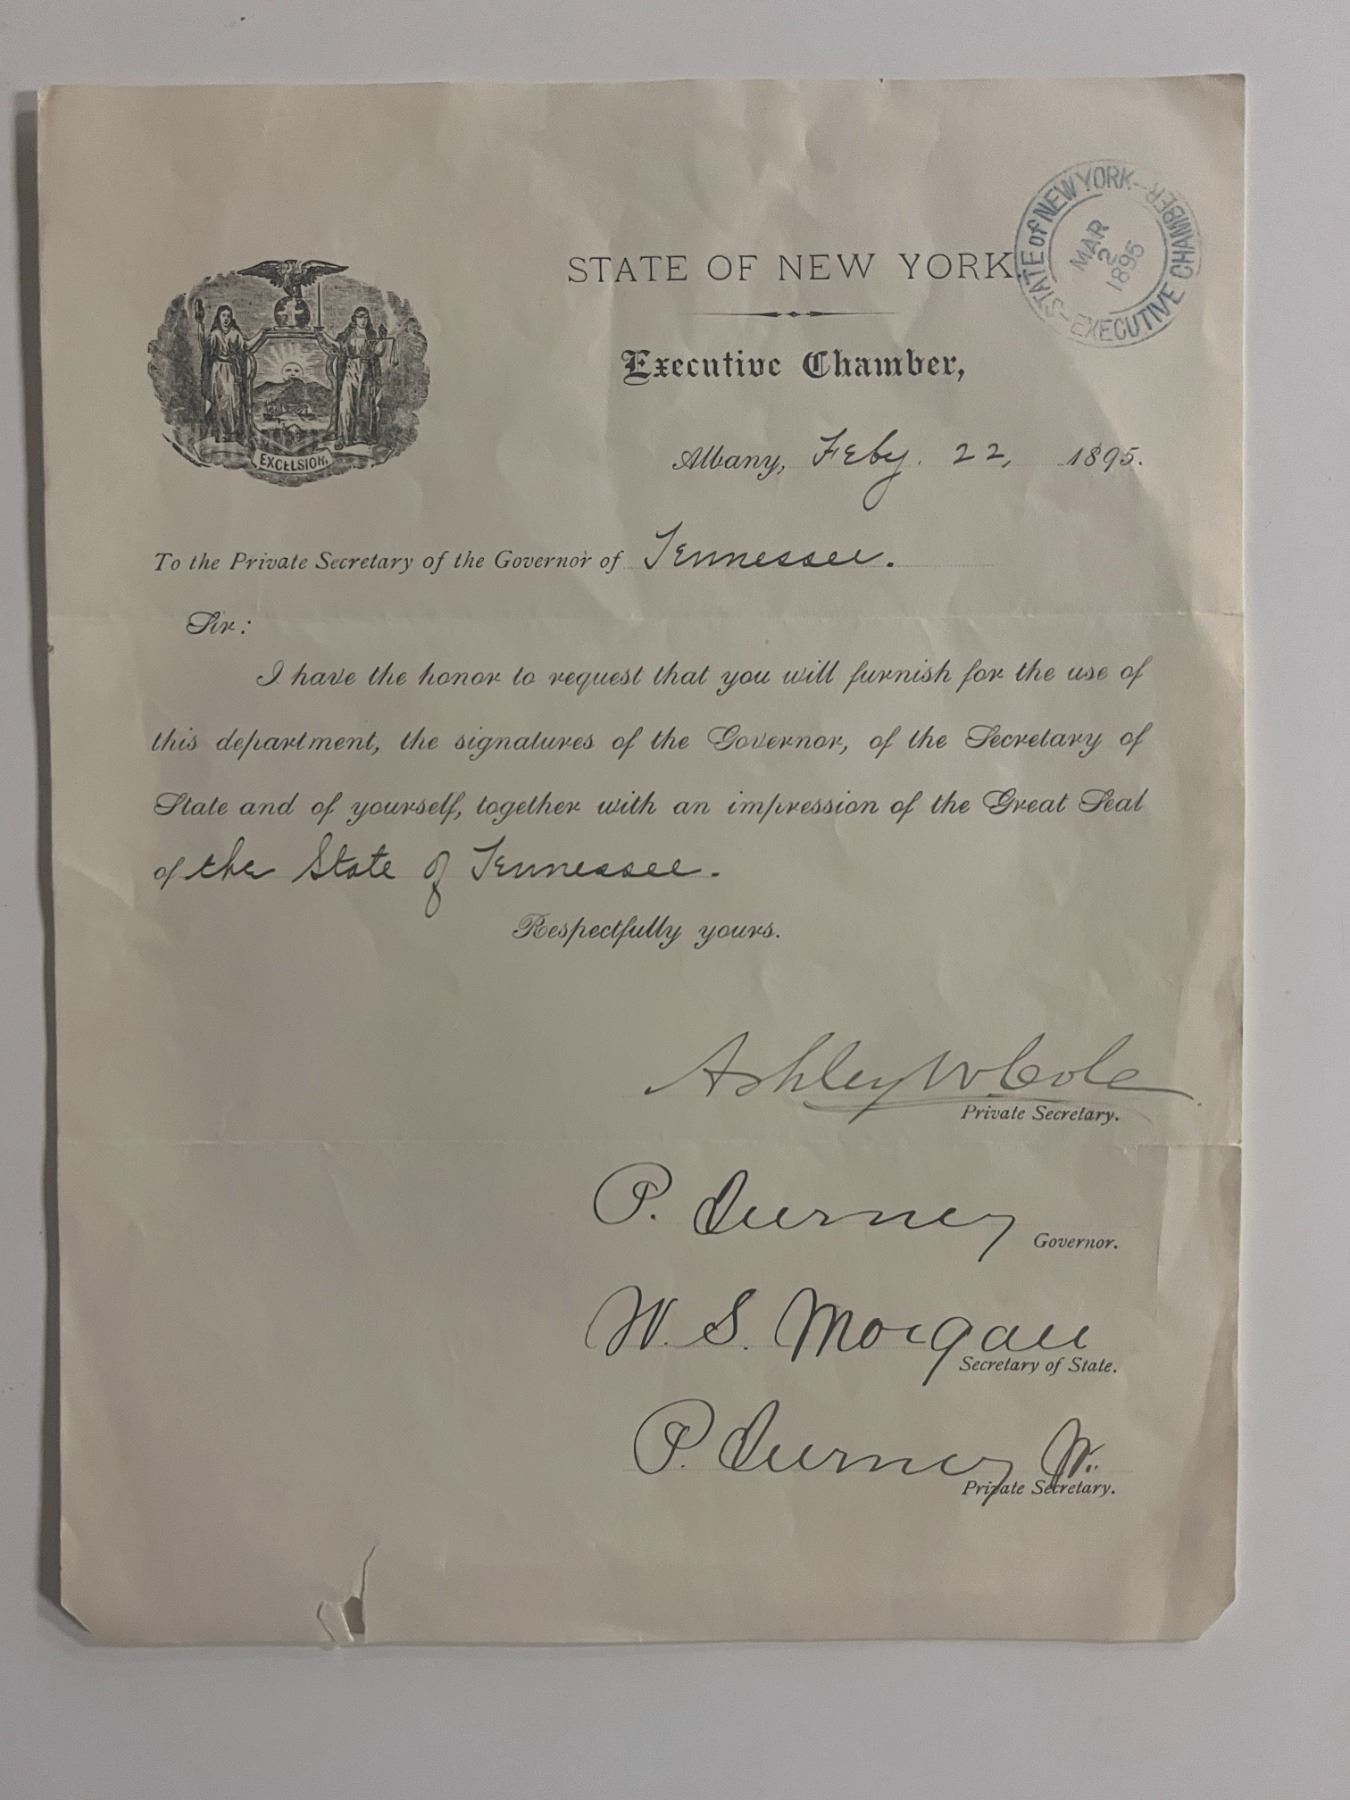 STATE OF NEW YORK
STATE of NEW YORK
EXECUTIVE CHAMBER
MAR
2
1895
Executive Chamber,
EXCELSIOR.
Albany, Feby. 22, 1895.
To the Private Secretary of the Governor of Tennessee.
Sir:
I have the honor to request that you will furnish for the use of
this department, the signatures of the Governor, of the Secretary of
State and of yourself, together with an impression of the Great Seal
of the State of Tennessee.
Respectfully yours.
Ashley W. Cole
Private Secretary.
P. Turney
Governor.
W. S. Morgan
Secretary of State.
P. Turney Jr.
Private Secretary.